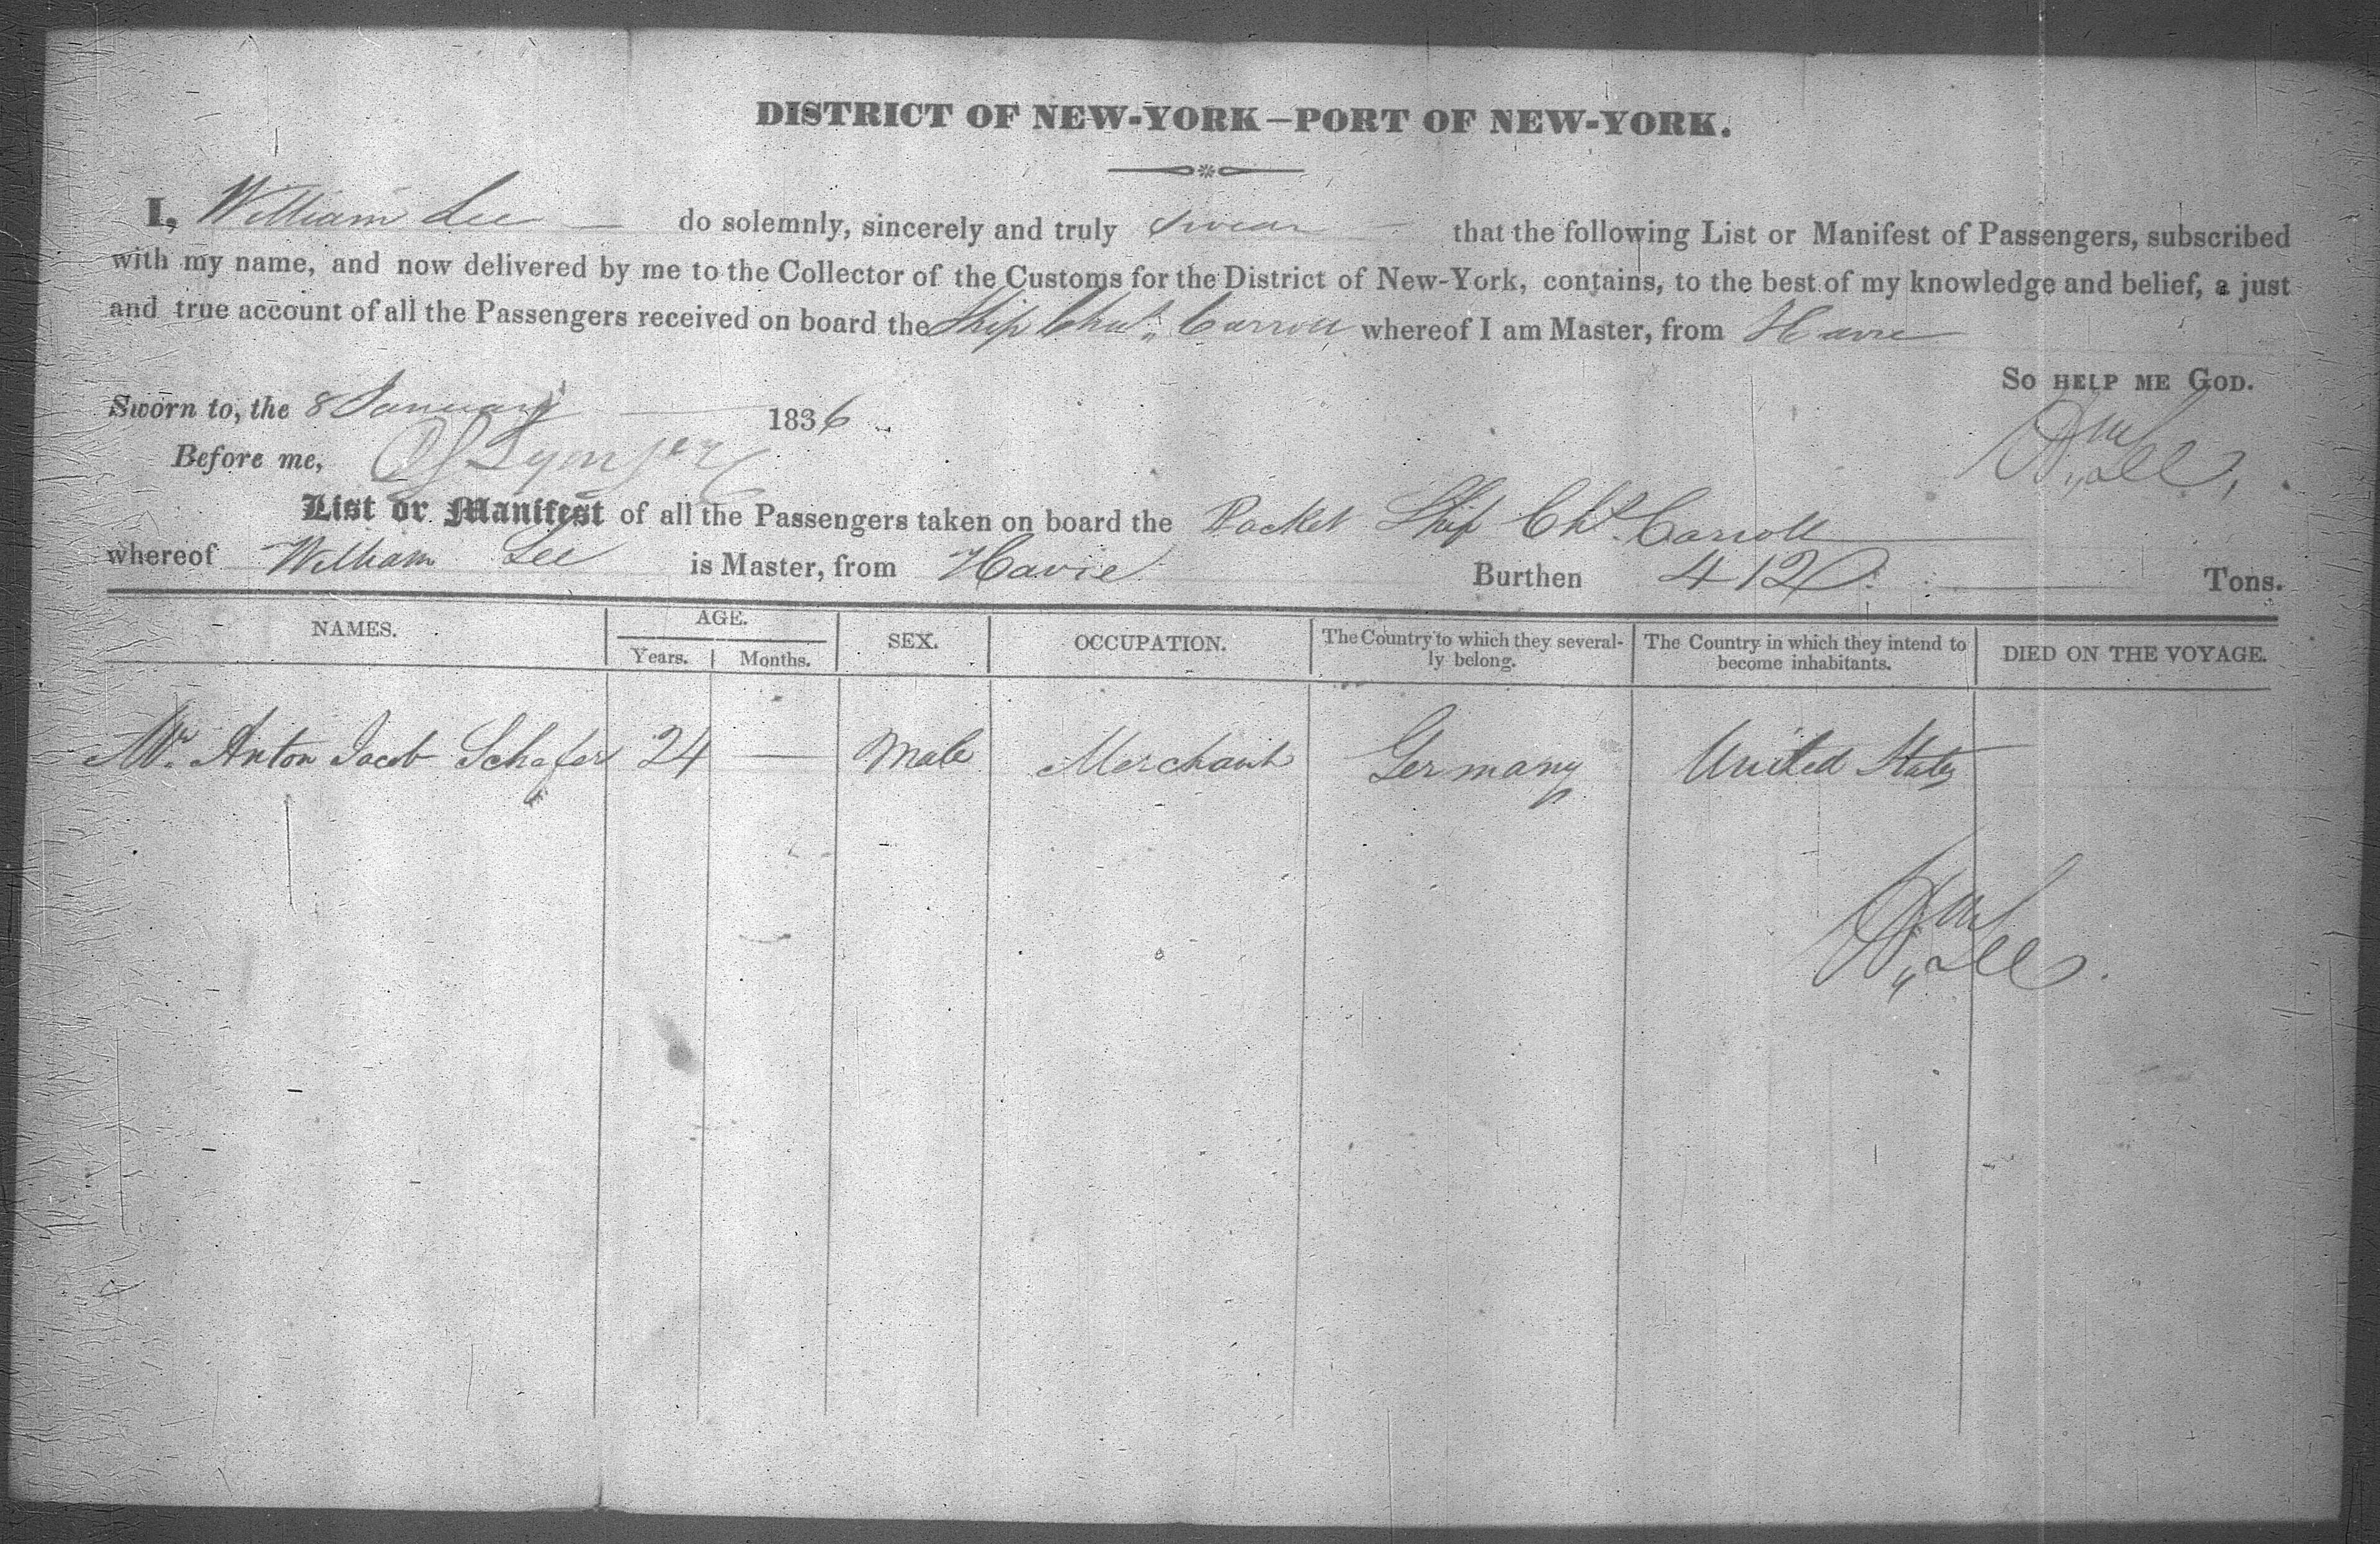 DISTRICT OF NEW-YORK—PORT OF NEW-YORK.
I, William Lee do solemnly, sincerely and truly swear that the following List or Manifest of Passengers, subscribed
with my name, and now delivered by me to the Collector of the Customs for the District of New-York, contains, to the best of my knowledge and belief, a just
and true account of all the Passengers received on board the Ship Chas. Carroll whereof I am Master, from Havre
So HELP ME GOD.
Sworn to, the 8 January 1836
Wm Lee
Before me,
List or Manifest of all the Passengers taken on board the Packet Ship Chs. Carroll
whereof William Lee is Master, from Havre Burthen 412 Tons.
NAMES. AGE. SEX. OCCUPATION. The Country to which they several- The Country in which they intend to DIED ON THE VOYAGE.
Years. Months. ly belong. become inhabitants.
Mr. Anton Jacob Schafer 24 — Male Merchant Germany United States
Wm Lee.